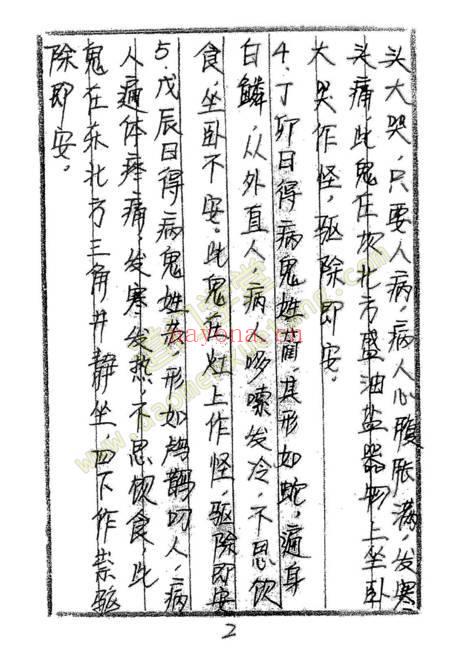 头大哭，只要人病，病人心腹胀满，发寒
头痛，此鬼在次北方盛油盐器物上坐卧
大哭作怪，驱除即安。
4、丁卯日得病鬼姓，其形如蛇，遍身
白鳞，从外直人，病哆嗦发冷，不思饮
食坐卧不安。此鬼在灶上作怪，驱除即安
5、戊辰日得病鬼姓，形如叼人，病
人遍体疼痛，发寒发热，不思饮食，此
鬼在东北方三角井静坐，四下作祟驱
除即安。
2
nayona.cn